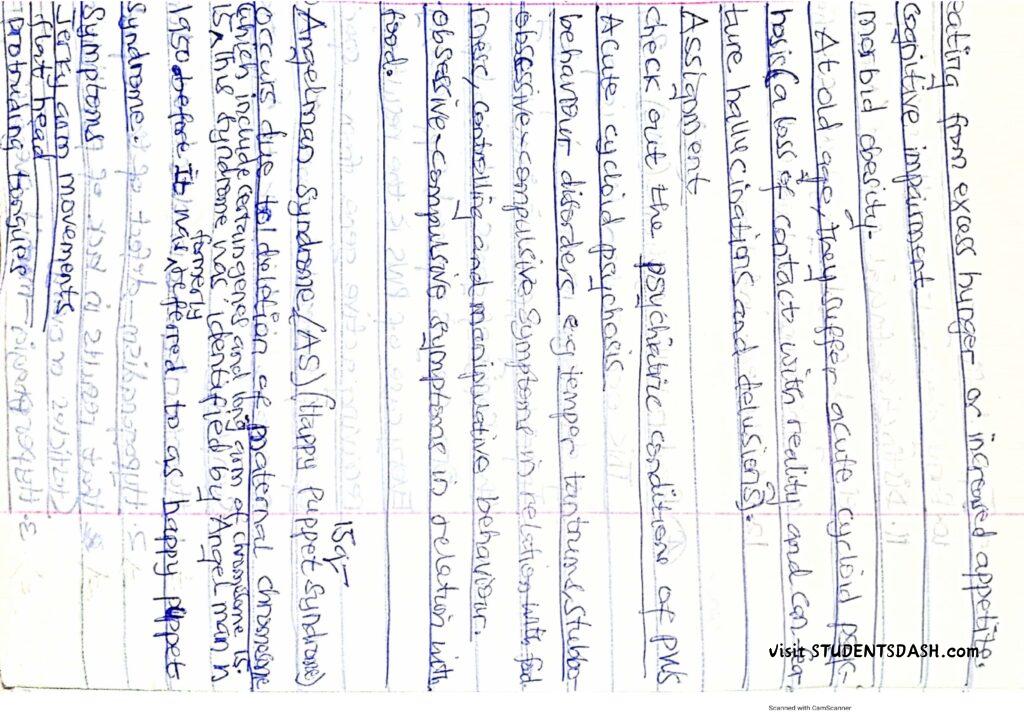 eating from excess hunger or increased appetite.
Cognitive impairment
morbid obesity.
At old age, they suffer acute cycloid psyc-
hosis (a loss of contact with reality and can fea-
ture hallucinations and delusions).
Assignment
check out the psychiatric condition of PWS
Acute cycloid psychosis
behaviour disorders eg temper tantrums, stubbo-
rness, controlling and manipulative behaviour.
obsessive-compulsive symptoms in relation with food
obsessive-compulsive symptoms in relation with
food.
15q-
Angelman Syndrome (AS) (Happy puppet syndrome)
occurs due to deletion of maternal chromosome
which include certain genes and long arm of chromosome 15
15, This syndrome was identified by Angelman in
formerly
1950 before it was referred to as happy puppet
Syndrome.
Symptoms
Jerky arm movements
flat head
Protruding tongue
visit STUDENTSDASH.com
Scanned with CamScanner